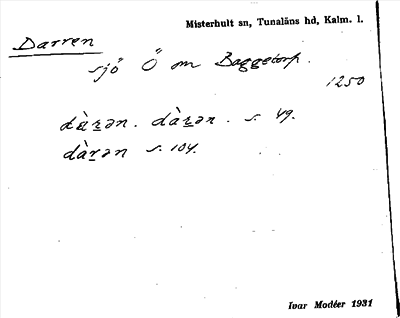 Misterhult sn, Tunaläns hd, Kalm. l.
Darren
sjö Ö om Baggetorp.
1250
dàṟən. dàṟən. s. 49.
dàṟən s. 104.
Ivar Modéer 1931